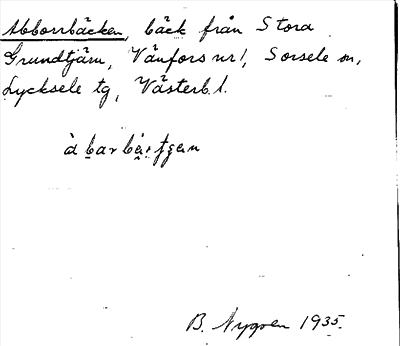 Abborrbäcken, bäck från Stora
Grundtjärn, Vänfors nr 1, Sorsele sn,
Lycksele tg, Västerb. l.
B. Nygren 1935.